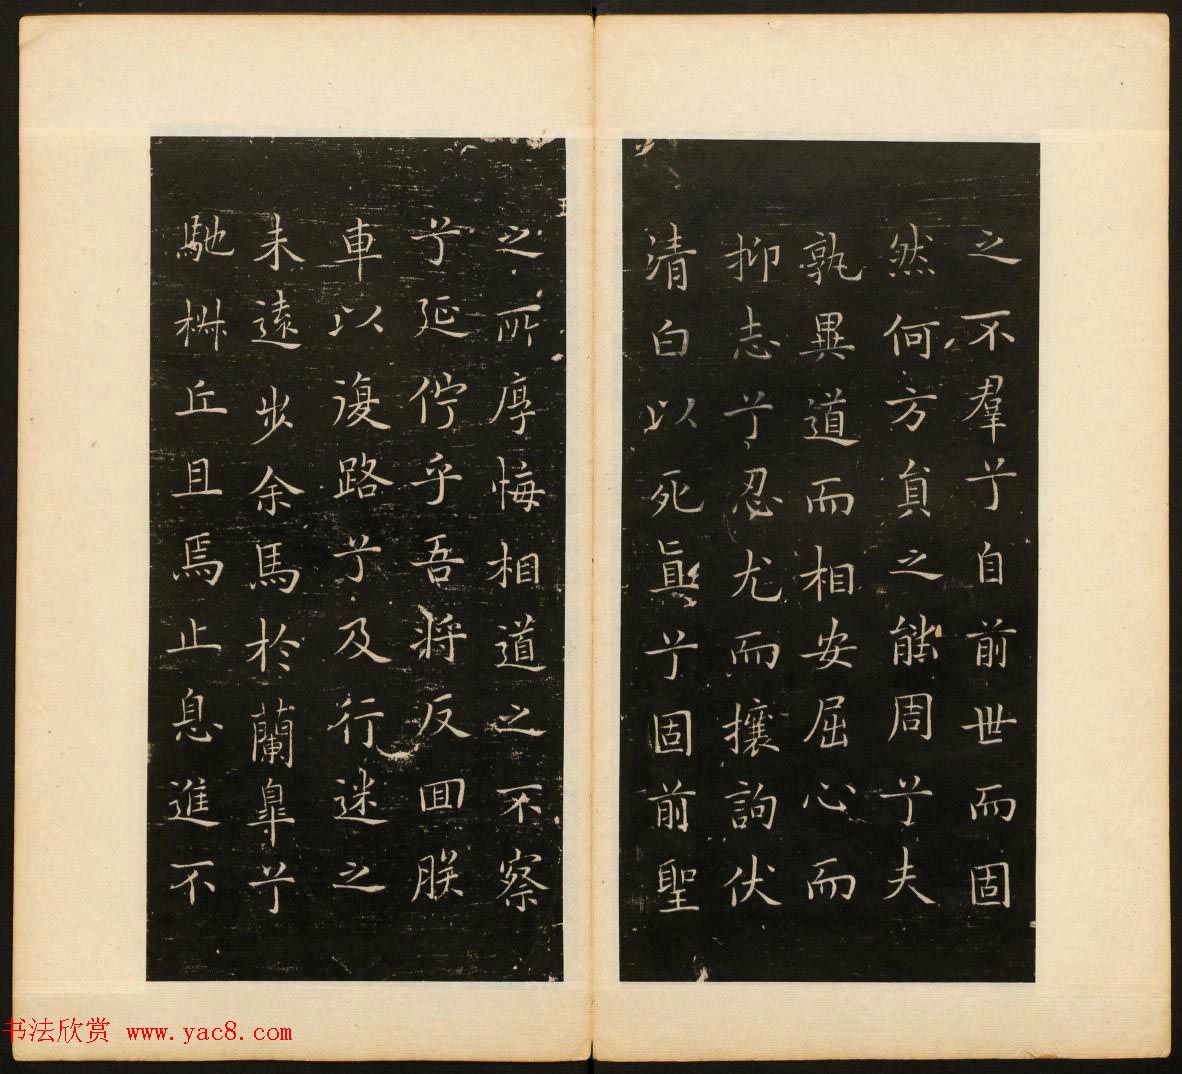 之不羣兮自前世而固
然何方貟之能周兮夫
孰異道而相安屈心而
抑志兮忍尤而攘訽伏
清白以死眞兮固前聖
之所厚悔相道之不察
兮延佇乎吾將反囬朕
車以復路兮及行迷之
未遠步余馬於蘭皋兮
馳椒丘且焉止息進不
书法欣赏 www.yac8.com